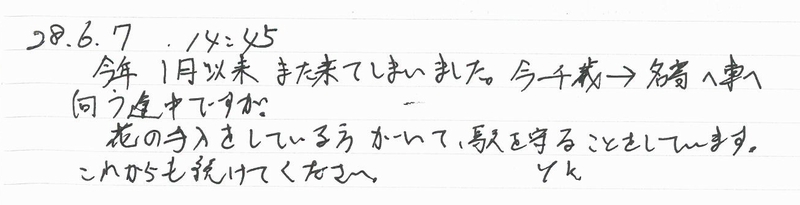 28.6.7 . 14:45
今年 1月以来 また来てしまいました。今千歳→名寄へ車へ
向う途中ですが。
花の手入をしている方がいて、駅を守ることをしています。
これからも続けてください。 Yk